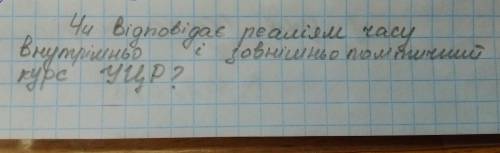 Чи відповідає реаліям часу
внутрішньо і зовнішньополітичний
курс УЦР?